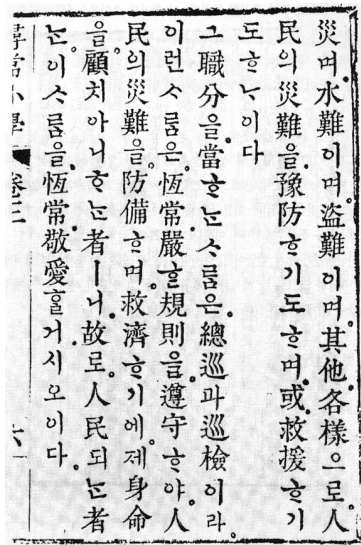 災며。水難이며。盜難이며。其他各樣으로。人
民의災難을。豫防ᄒᆞ기도ᄒᆞ며。或救援ᄒᆞ기
도ᄒᆞᄂᆞ이다
그職分을。當ᄒᆞᄂᆞᆫᄉᆞᄅᆞᆷ은。總巡과巡檢이라。
이런ᄉᆞᄅᆞᆷ은。恆常。嚴ᄒᆞᆫ規則을。遵守ᄒᆞ야。人
民의災難을。防備ᄒᆞ며。救濟ᄒᆞ기에。제身命
을。顧치아니ᄒᆞᄂᆞᆫ者ㅣ니。故로。人民되ᄂᆞᆫ者
ᄂᆞᆫ。이ᄉᆞᄅᆞᆷ을。恆常。敬愛ᄒᆞᆯ거시오이다。
尋常小學 六